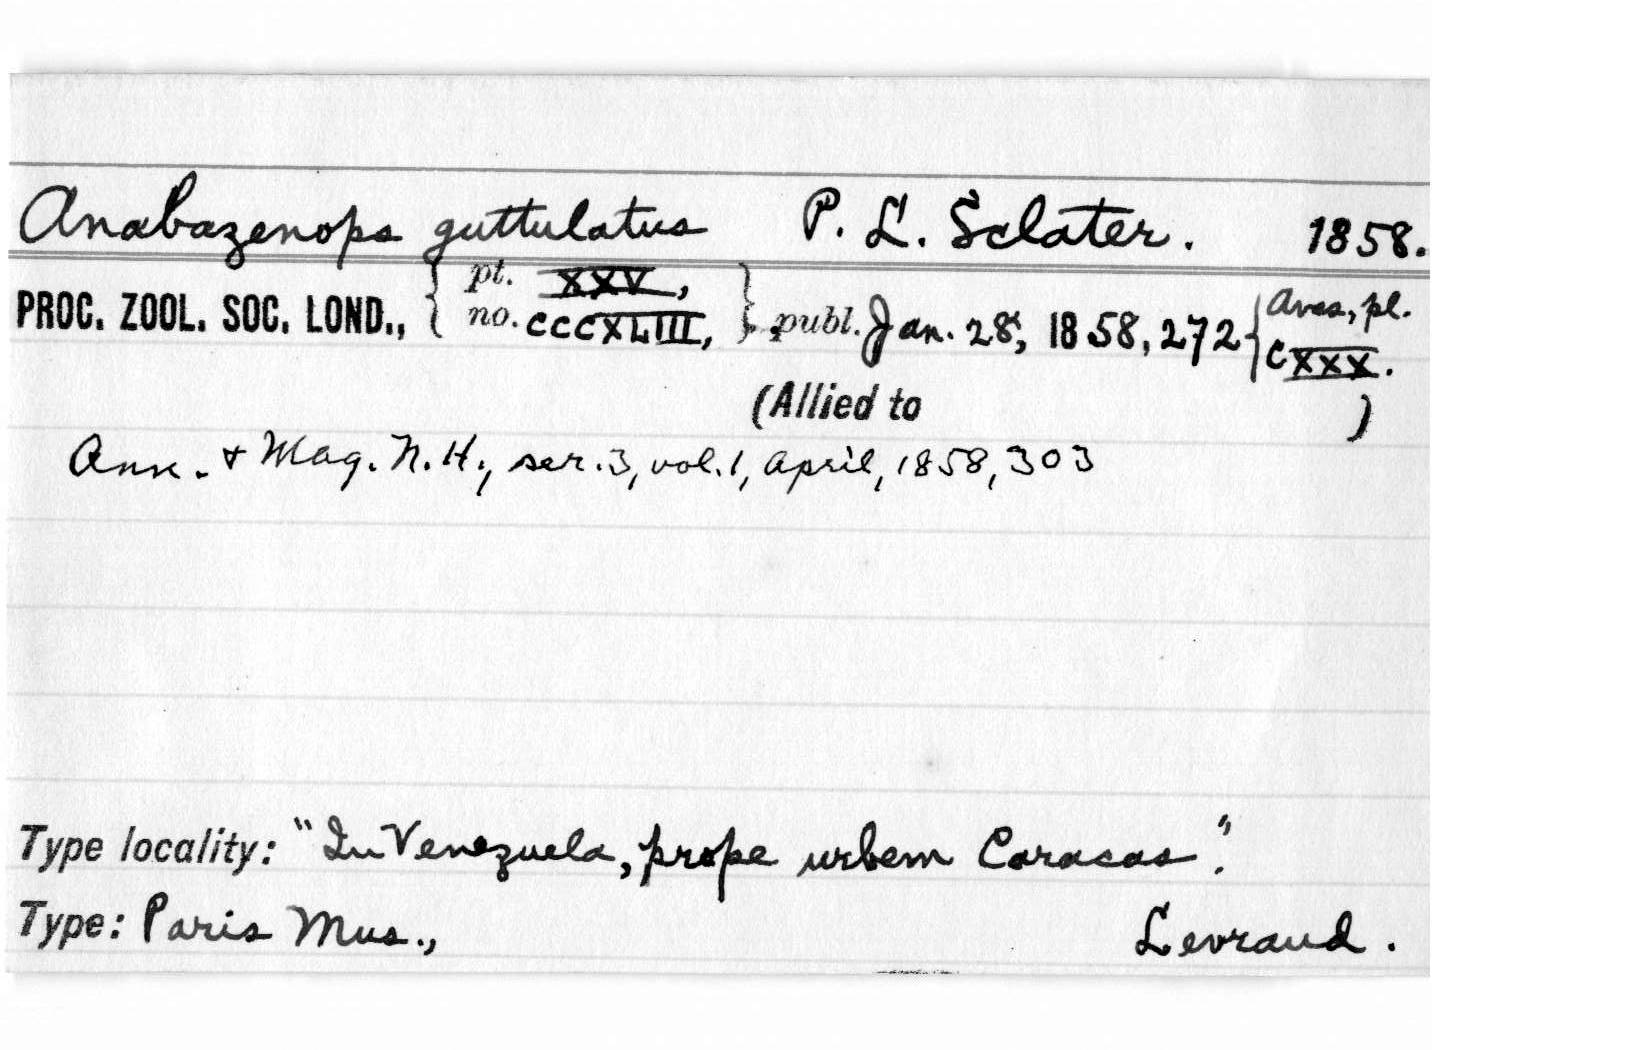 Anabazenops guttulatus P. L. Sclater. 1858.
PROC. ZOOL. SOC. LOND., { pt. XXV, no. CCCXLIII, }, publ. Jan. 28, 1858, 272 { Aves, pl. CXXX.
(Allied to )
Ann. & Mag. N. H., ser. 3, vol. 1, April, 1858, 303
Type locality: "In Venezuela, prope urbem Caracas".
Type: Paris Mus., Levraud.